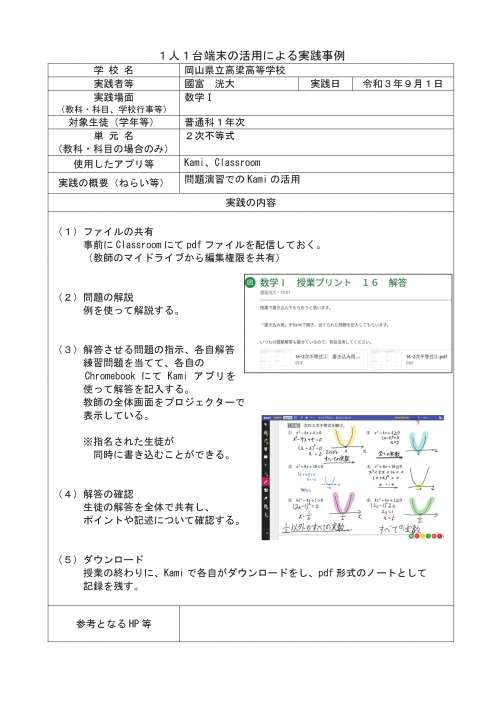 １人１台端末の活用による実践事例
学 校 名 岡山県立高梁高等学校
実践者等 國富 洸大 実践日 令和３年９月１日
実践場面
（教科・科目、学校行事等） 数学Ⅰ
対象生徒（学年等） 普通科１年次
単 元 名
（教科・科目の場合のみ） ２次不等式
使用したアプリ等 Kami、Classroom
実践の概要（ねらい等） 問題演習での Kami の活用
実践の内容
（１）ファイルの共有
事前に Classroom にて pdf ファイルを配信しておく。
（教師のマイドライブから編集権限を共有）
数学Ⅰ 授業プリント １６ 解答
授業で書き込んでもらおうと思います。
「書き込み用」をKamiで開き、当てられた問題を記入してもらいます。
いつもの模範解答も載せているので、有効活用してください。
16-2次不等式② 書き込み用...
PDF
16-2次不等式②.pdf
PDF
（２）問題の解説
例を使って解説する。
（３）解答させる問題の指示、各自解答
練習問題を当てて、各自の
Chromebook にて Kami アプリを
使って解答を記入する。
教師の全体画面をプロジェクターで
表示している。
※指名された生徒が
同時に書き込むことができる。
次の2次不等式を解け。
すべての実数
（４）解答の確認
生徒の解答を全体で共有し、
ポイントや記述について確認する。
（５）ダウンロード
授業の終わりに、Kami で各自がダウンロードをし、pdf 形式のノートとして
記録を残す。
参考となる HP 等